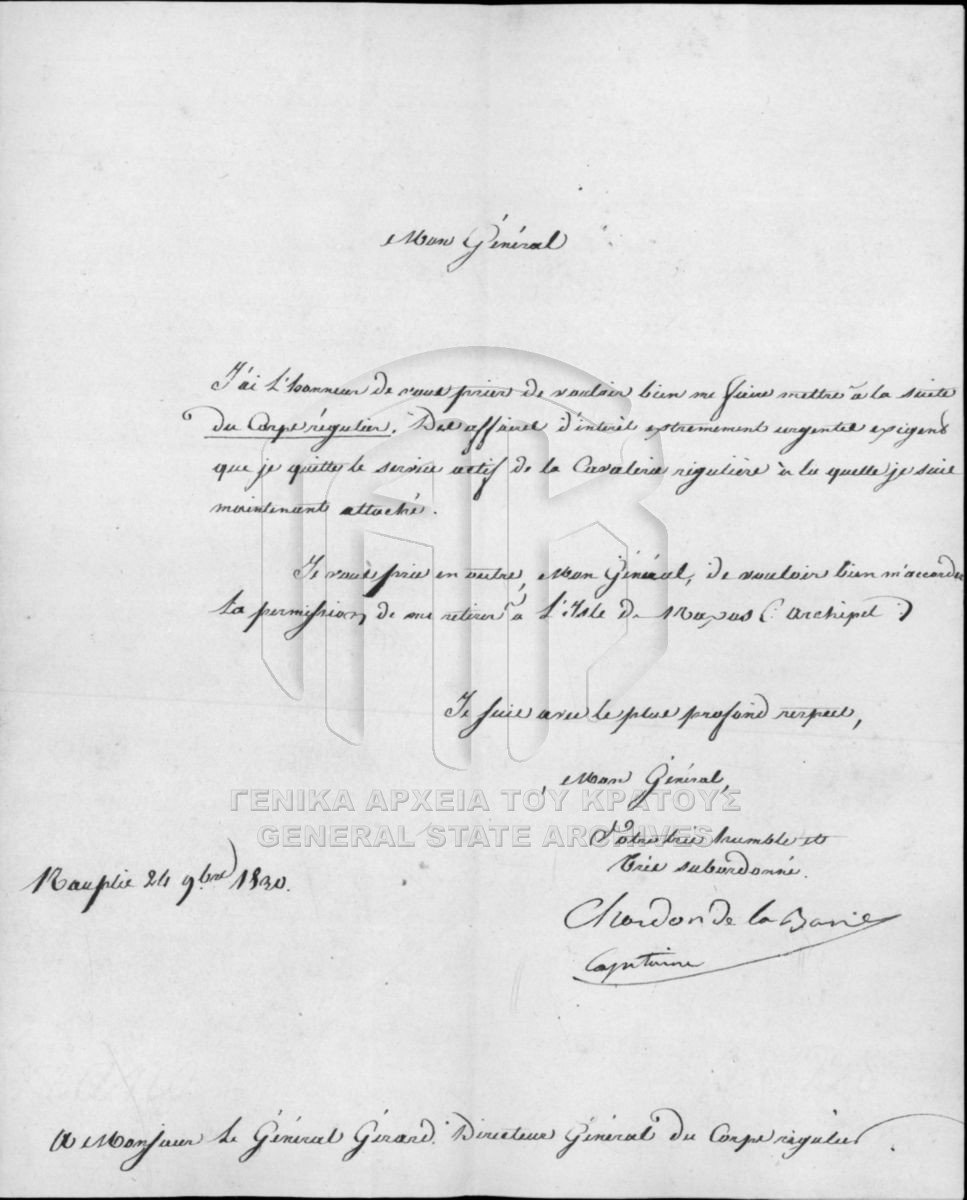 Mon Général
J'ai l'honneur de vous prier de vouloir bien me faire mettre à la suite
du Corps régulier. Des affaires d'intérêt extremement urgentes exigent
que je quitte le service actif de la Cavalerie régulière à la quelle je suis
maintenant attaché.
Je vous prie en outre, Mon Général, de vouloir bien m'accorder
la permission de me retirer à l'Isle de Naxos (Archipel)
Je suis avec le plus profond respect,
Mon Général,
ΓΕΝΙΚΑ ΑΡΧΕΙΑ ΤΟΥ ΚΡΑΤΟΥΣ
GENERAL STATE ARCHIVES
Votre très humble et
très subordonné.
Nauplie 24 9bre 1830.
Chardon de la
Capitaine
A Monsieur le Général Gérard. Directeur Général du Corps régulier